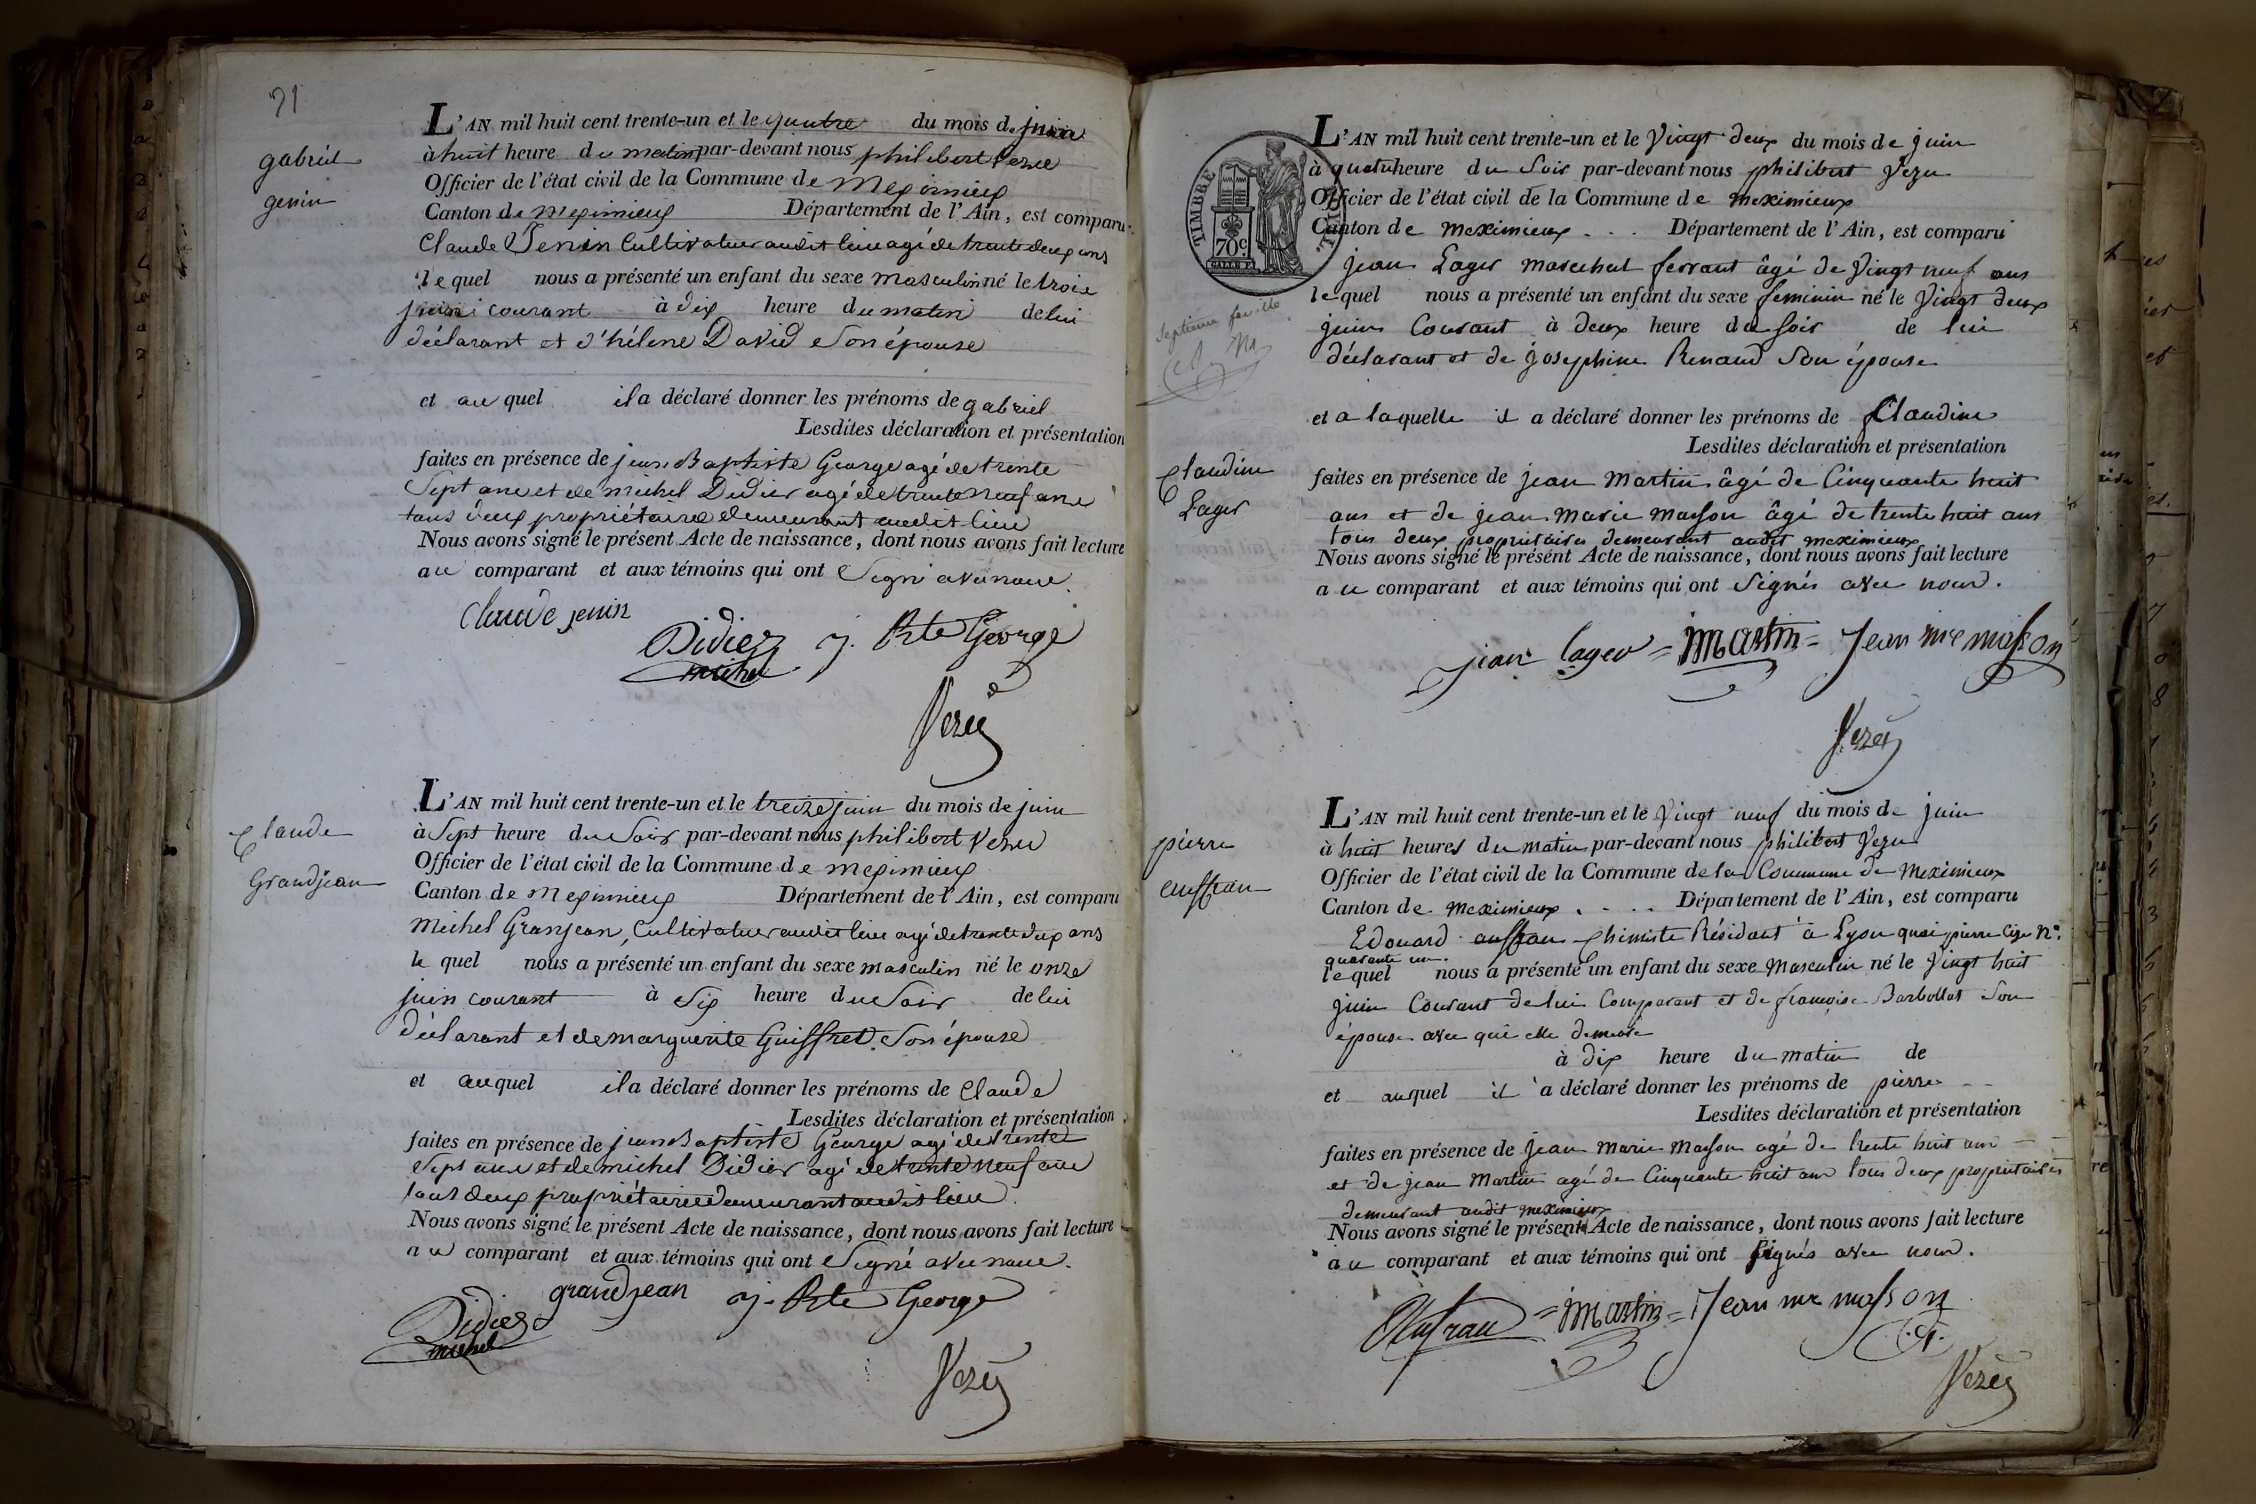 71
gabriel
genin
L'AN mil huit cent trente-un et le quatre du mois de juin
à huit heure du matin par-devant nous philibert Vezu
Officier de l'état civil de la Commune de Meximieux
Canton de Meximieux Département de l'Ain, est comparu
Claude Jenin Cultivateur audit lieu agé de trente deux ans
le quel nous a présenté un enfant du sexe masculin né le trois
juin courant à dix heure du matin de lui
déclarant et d'hélene David son épouse
et au quel il a déclaré donner les prénoms de gabriel
Lesdites déclaration et présentation
faites en présence de jean Baptiste George agé de trente
Sept ans et de michel Didier agé de trente neuf ans
tous deux propriétaires demeurant audit lieu
Nous avons signé le présent Acte de naissance, dont nous avons fait lecture
au comparant et aux témoins qui ont Signé avec nous.
Claude jenin
Didier michel j. Bte George
Vezu
Claude
Grandjean
L'AN mil huit cent trente-un et le treize juin du mois de juin
à Sept heure du Soir par-devant nous philibert Vezu
Officier de l'état civil de la Commune de meximieux
Canton de Meximieux Département de l'Ain, est comparu
Michel Granjean, Cultivateur audit lieu agé de trente deux ans
le quel nous a présenté un enfant du sexe masculin né le onze
juin courant à Six heure du Soir de lui
déclarant et de marguerite Guiffret Son épouse
et auquel il a déclaré donner les prénoms de Claude
Lesdites déclaration et présentation
faites en présence de jean Baptiste George agé de trente
Sept ans et de michel Didier agé de trente neuf ans
tous deux propriétaires demeurant audit lieu.
Nous avons signé le présent Acte de naissance, dont nous avons fait lecture
au comparant et aux témoins qui ont Signé avec nous.
grandjean j. Bte George
Didier
michel
Vezu
TIMBRE
70c
L'AN mil huit cent trente-un et le Vingt deux du mois de juin
à quatre heure du Soir par-devant nous philibert Vezu
Officier de l'état civil de la Commune de meximieux
Canton de meximieux Département de l'Ain, est comparu
jean Lager marechal ferrant âgé de Vingt neuf ans
le quel nous a présenté un enfant du sexe feminin né le Vingt deux
juin Courant à deux heure du soir de lui
déclarant et de josephine Renaud Son épouse
Septieme feuille
et a laquelle il a déclaré donner les prénoms de Claudine
Lesdites déclaration et présentation
Claudine
Lager
faites en présence de jean martin âgé de Cinquante huit
ans et de jean marie masson âgé de trente huit ans
tous deux propriétaires demeurant audit meximieux
Nous avons signé le présent Acte de naissance, dont nous avons fait lecture
au comparant et aux témoins qui ont Signés avec nous.
jean lager = jmartin = Jean mie masson
Vezu
pierre
auffran
L'AN mil huit cent trente-un et le Vingt neuf du mois de juin
à huit heures du matin par-devant nous philibert Vezu
Officier de l'état civil de la Commune de la Commune de Meximieux
Canton de meximieux Département de l'Ain, est comparu
Edouard auffran Chimiste Résidant à Lyon quai pierre Cize N°.
quarante un.
le quel nous a présenté un enfant du sexe Masculin né le Vingt huit
juin Courant de lui Comparant et de françoise Barbollat Son
épouse avec qui elle demeure
à dix heure du matin de
et auquel il a déclaré donner les prénoms de pierre
Lesdites déclaration et présentation
faites en présence de jean marie masson agé de trente huit ans
et de jean Martin agé de Cinquante huit ans tous deux propriétaires
demeurant audit meximieux
Nous avons signé le présent Acte de naissance, dont nous avons fait lecture
au comparant et aux témoins qui ont Signés avec nous.
= jmartin = Jean mie masson
Vezu